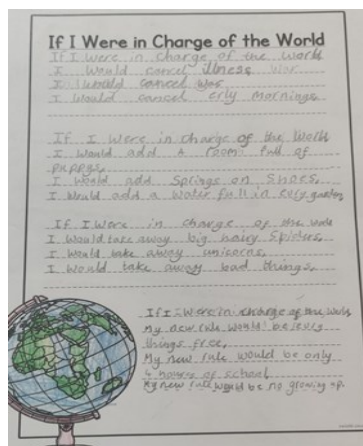 If I Were in Charge of the World
If I were in charge of the World
I would cancel illness war
I would cancel war
I would cancel erly mornings
If I were in charge of the World
I would add a room full of
puppys.
I would add springs on shoes.
I would add a water fall in evry garden
If I were in charge of the
I would take away big hairy spiders.
I would take away unicorns.
I would take away bad things.
If I were in charge of the World
My new rule would be
things free.
My new rule would be only
4 hours of school
My new rule would be no growing up.